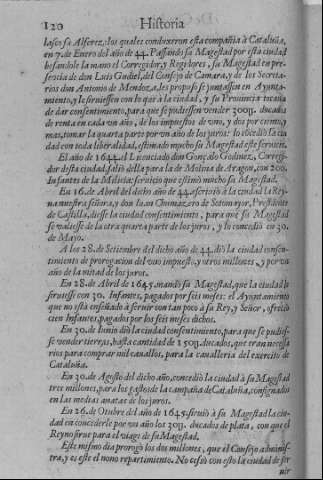 120 Historia
lasco su Alferez, los quales conduxeron esta compañia à Cataluña,
en 7. de Enero del año de 44. Passando su Magestad por esta ciudad
besandole la mano el Corregidor, y Regidores, su Magestad en pre-
sencia de don Luis Gudiel, del Consejo de Camara, y de los Secreta-
rios don Antonio de Mendoza, les propuso se juntassen en Ayunta-
miento, y le sirviessen con lo que à la ciudad, y su Provincia tocaba
de dar consentimiento, para que se pudiessen vender 300j. ducados
de renta en cada vn año, de los impuestos de vno, y dos por ciento, y
mas, tomar la quarta parte por vn año de los juros: lo concediò la ciu-
dad con toda liberalidad, estimado mucho su Magestad este servicio.
El año de 1644. el Licenciado don Gonçalo Godinez, Corregi-
dor desta ciudad, saliò della para la de Molina de Aragon, con 200.
Infantes de la Milicia: servicio que estimò mucho su Magestad.
En 16. de Abril del dicho año de 44. escriviò à la ciudad la Rey-
na nuestra señora, y don Iuan Chumazero de Sotomayor, Presidente
de Castilla, diesse la ciudad consentimiento, para que su Magestad
se valiesse de la otra quarta parte de los juros, y lo concediò en 30.
de Mayo.
A los 28. de Setiembre del dicho año de 44. diò la ciudad consen-
timiento de prorogacion del vno impuesto, y otros millones, y por vn
año de la mitad de los juros.
En 28. de Abril de 1645. mandò su Magestad, que la ciudad le
sirviesse con 30. Infantes, pagados por seis meses: el Ayuntamiento
que no està enseñado à servir con tan poco à su Rey, y Señor, ofreciò
cien Infantes, pagados por los seis meses dichos.
En 30. de Iunio diò la ciudad consentimiento, para que se pudies-
se vender tierras, hasta cantidad de 150j. ducados, que eran necessa
rios para comprar mil cavallos, para la cavalleria del exercito de
Cataluña.
En 30. de Agosto del dicho año, concediò la ciudad à su Magestad
tres millones, para los gastos de la campaña de Cataluña, consignados
en las medias anatas de los juros.
En 26. de Otubre del año de 1645. sirviò à su Magestad la ciu-
dad en concederle por vn año los 300j. ducados de plata, con que el
Reyno sirve para el viage de su Magestad.
Este mismo dia prorogò los dos millones, que el Consejo adminis-
tra, y es este el nono repartimiento. No cessò con esto la ciudad de ser
vir